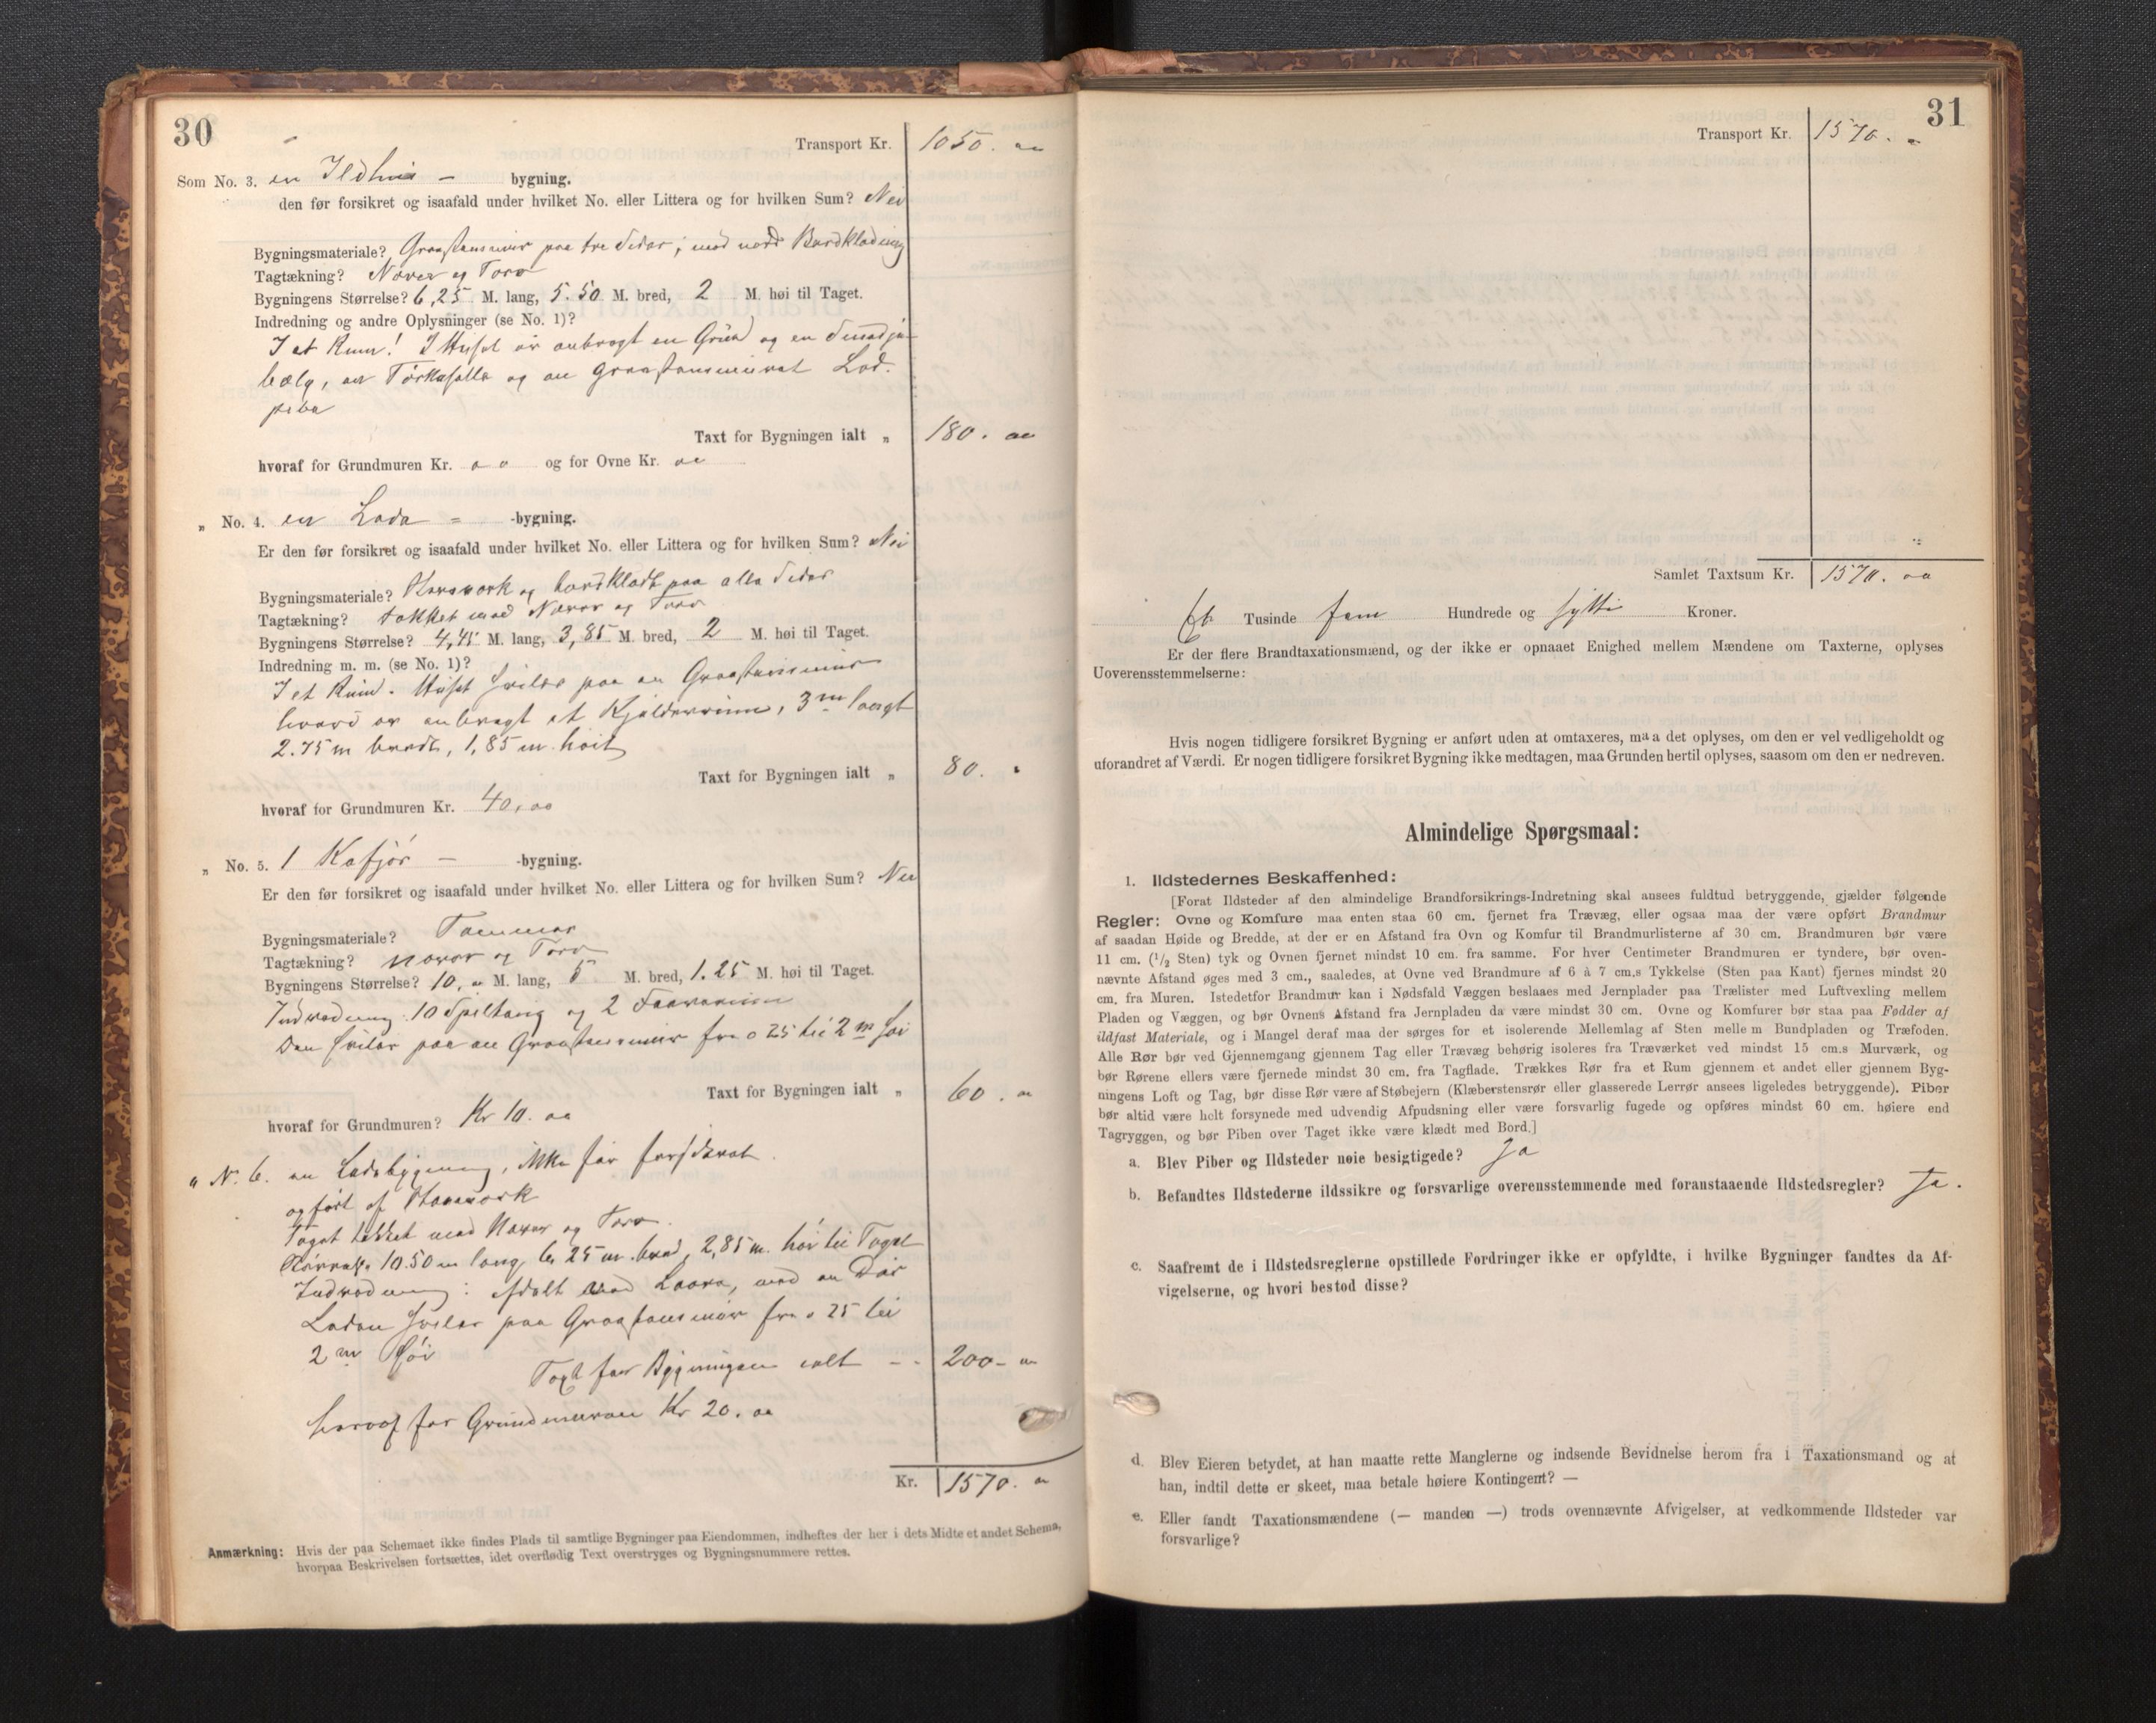 30
Transport Kr. 1050. "
Som No. 3. en Ildhus — bygning.
den før forsikret og isaafald under hvilket No. eller Littera og for hvilken Sum? Nei
Bygningsmateriale? Graastensmur paa tre Sider; mod nord Bordklædning
Tagtækning? Næver og Torv
Bygningens Størrelse? 6,25 M. lang, 5.50 M. bred, 2 M. høi til Taget.
Indredning og andre Oplysninger (se No. 1)?
I et Rum! I Huset er anbragt en Grue og en Smidje-
bælg, en Tørkehelle og en Graastensmuret Lod.
pibe
Taxt for Bygningen ialt „ 180. "
hvoraf for Grundmuren Kr. " og for Ovne Kr. "
„ No. 4. en Lada = -bygning.
Er den før forsikret og isaafald under hvilket No. eller Littera og for hvilken Sum? Nei
Bygningsmateriale? Stavværk og bordklædt paa alle Sider
Tagtækning? tækket med Næver og Torv
Bygningens Størrelse? 4,45 M. lang, 3,85 M. bred, 2 M. høi til Taget.
Indredning m. m. (se No. 1)?
I et Rum. Huset hviler paa en Graastensmur
hvori er anbragt et Kjelderrum, 3 m langt
2.75 m bredt, 1,85 m. høit
Taxt for Bygningen ialt „ 80. "
hvoraf for Grundmuren Kr. 40,00
„ No. 5. 1 Kofjøs — -bygning.
Er den før forsikret og isaafald under hvilket No. eller Littera og for hvilken Sum? Nei
Bygningsmateriale? Tømmer
Tagtækning? Næver og Torv
Bygningens Størrelse? 10, " M. lang, 5 M. bred, 1.25 M. høi til Taget.
Indredning: 10 Spiltaug og 2 Faarerum
Den hviler paa en Graastensmur fra 0 25 til 2 m høi
Taxt for Bygningen ialt „ 60. "
hvoraf for Grundmuren? Kr 10. 00
" N. 6. en Ladebygning, ikke før forsikret.
opført af Stavværk
Taget tækket med Næver og Torv.
Størrelse 10.50 m lang, 6,25 m. bred, 2,85 m. høi til Taget
Indredning: afdelt med Laave, med en Dør
Laden hviler paa Graastensmur fra 0 25 til
2 m høi
Taxt for Bygningen ialt - - 200 - "
hvoraf for Grundmuren Kr 20. 00
Kr. 1570. "
Anmærkning: Hvis der paa Schemaet ikke findes Plads til samtlige Bygninger paa Eiendommen, indheftes der her i dets Midte et andet Schema,
hvorpaa Beskrivelsen fortsættes, idet overflødig Text overstryges og Bygningsnummere rettes.
31
Transport Kr. 1570. "
Samlet Taxtsum Kr. 1570. "
Et Tusinde fem Hundrede og sytti Kroner.
Er der flere Brandtaxationsmænd, og der ikke er opnaaet Enighed mellem Mændene om Taxterne, oplyses
Uoverensstemmelserne:
Hvis nogen tidligere forsikret Bygning er anført uden at omtaxeres, maa det oplyses, om den er vel vedligeholdt og
uforandret af Værdi. Er nogen tidligere forsikret Bygning ikke medtagen, maa Grunden hertil oplyses, saasom om den er nedreven.
Almindelige Spørgsmaal:
1. Ildstedernes Beskaffenhed:
[Forat Ildsteder af den almindelige Brandforsikrings-Indretning skal ansees fuldtud betryggende, gjælder følgende
Regler: Ovne og Komfure maa enten staa 60 cm. fjernet fra Trævæg, eller ogsaa maa der være opført Brandmur
af saadan Høide og Bredde, at der er en Afstand fra Ovn og Komfur til Brandmurlisterne af 30 cm. Brandmuren bør være
11 cm. (1/2 Sten) tyk og Ovnen fjernet mindst 10 cm. fra samme. For hver Centimeter Brandmuren er tyndere, bør oven-
nævnte Afstand øges med 3 cm., saaledes, at Ovne ved Brandmure af 6 à 7 cm.s Tykkelse (Sten paa Kant) fjernes mindst 20
cm. fra Muren. Istedetfor Brandmur kan i Nødsfald Væggen beslaaes med Jernplader paa Trælister med Luftvexling mellem
Pladen og Væggen, og bør Ovnens Afstand fra Jernpladen da være mindst 30 cm. Ovne og Komfurer bør staa paa Fødder af
ildfast Materiale, og i Mangel deraf maa der sørges for et isolerende Mellemlag af Sten mellem Bundpladen og Træfoden.
Alle Rør bør ved Gjennemgang gjennem Tag eller Trævæg behørig isoleres fra Træværket ved mindst 15 cm.s Murværk, og
bør Rørene ellers være fjernede mindst 30 cm. fra Tagflade. Trækkes Rør fra et Rum gjennem et andet eller gjennem Byg-
ningens Loft og Tag, bør disse Rør være af Støbejern (Klæberstensrør eller glasserede Lerrør ansees ligeledes betryggende). Piber
bør altid være helt forsynede med udvendig Afpudsning eller være forsvarlig fugede og opføres mindst 60 cm. høiere end
Tagryggen, og bør Piben over Taget ikke være klædt med Bord.]
a. Blev Piber og Ildsteder nøie besigtigede? Ja
b. Befandtes Ildstederne ildssikre og forsvarlige overensstemmende med foranstaaende Ildstedsregler? Ja.
c. Saafremt de i Ildstedsreglerne opstillede Fordringer ikke er opfyldte, i hvilke Bygninger fandtes da Af-
vigelserne, og hvori bestod disse?
d. Blev Eieren betydet, at han maatte rette Manglerne og indsende Bevidnelse herom fra i Taxationsmand og at
han, indtil dette er skeet, maa betale høiere Kontingent? —
e. Eller fandt Taxationsmændene (— manden —) trods ovennævnte Afvigelser, at vedkommende Ildsteder var
forsvarlige?